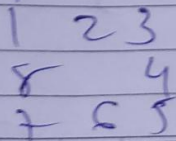 1 2 3
8 4
7 6 5